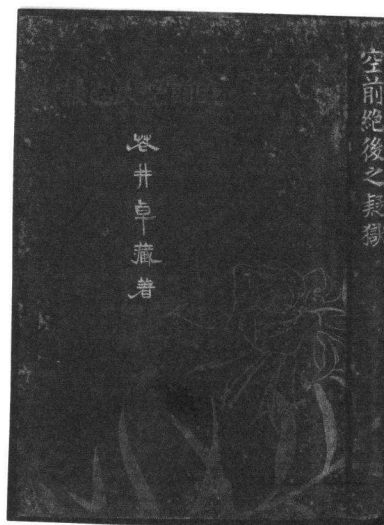 空前絶後之疑獄
花井卓藏著